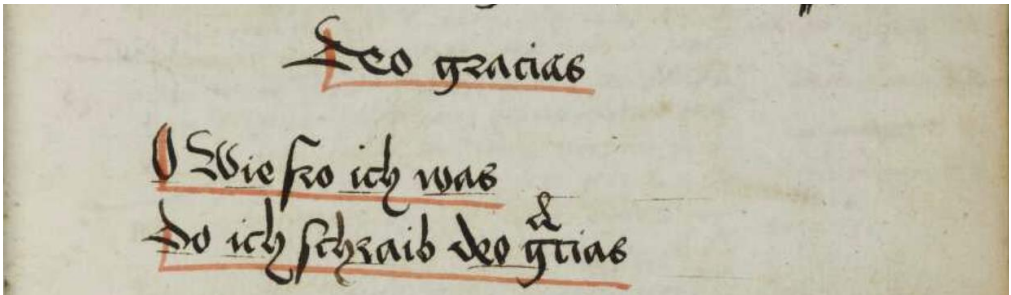 Deo gracias
O Wie fro ich was
Do ich schraib deo gᵃcias